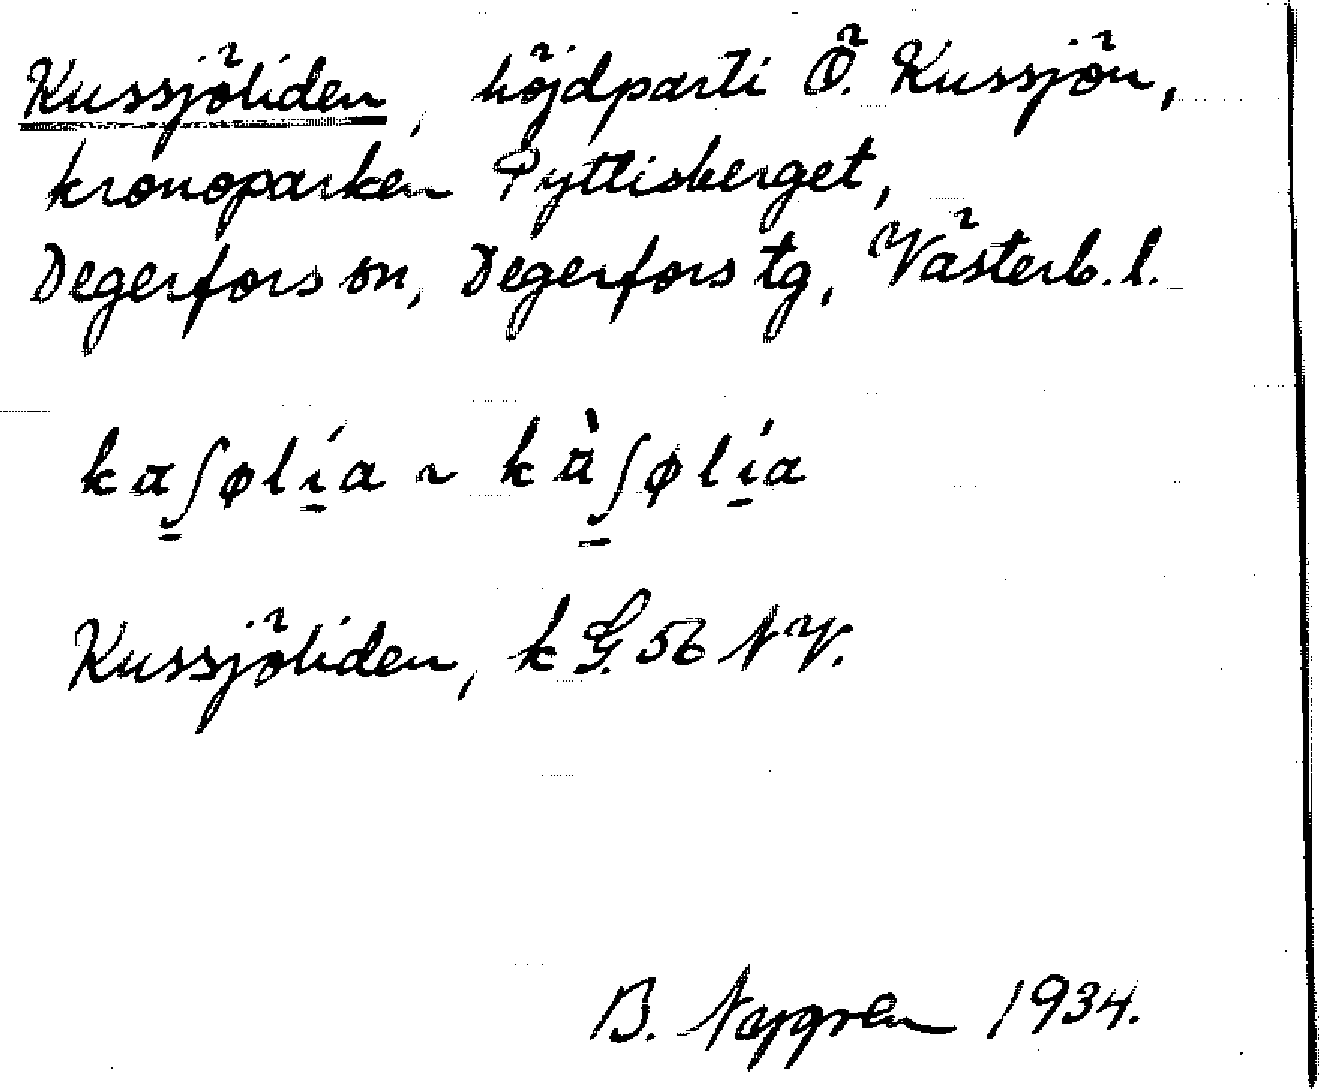 Kussjöliden, höjdparti Ö. Kussjön,
kronoparken Pyttisberget,
Degerfors sn, Degerfors tg, Västerb. l.
kaʃøli̱a ~ kàʃøli̱a
Kussjöliden, k G. 56 NV.
B. 1934.